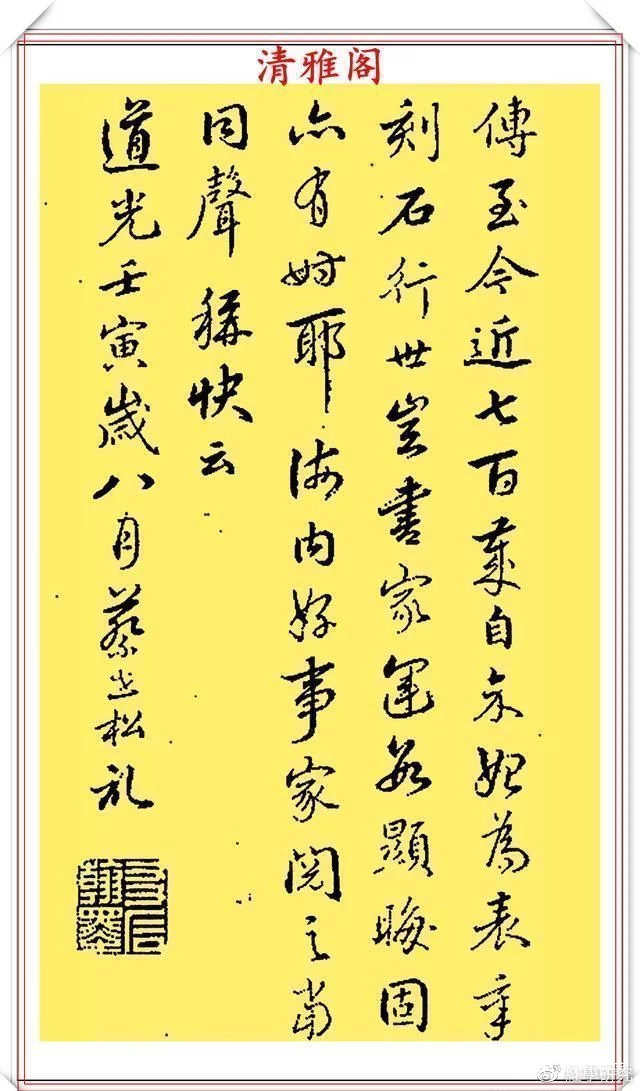 清雅阁
傳至今近七百載自余始為表章
刻石行世豈書家運數顯晦固
亦有時耶海内好事家閱之當
同聲稱快云
道光壬寅歲八月蔡世松記